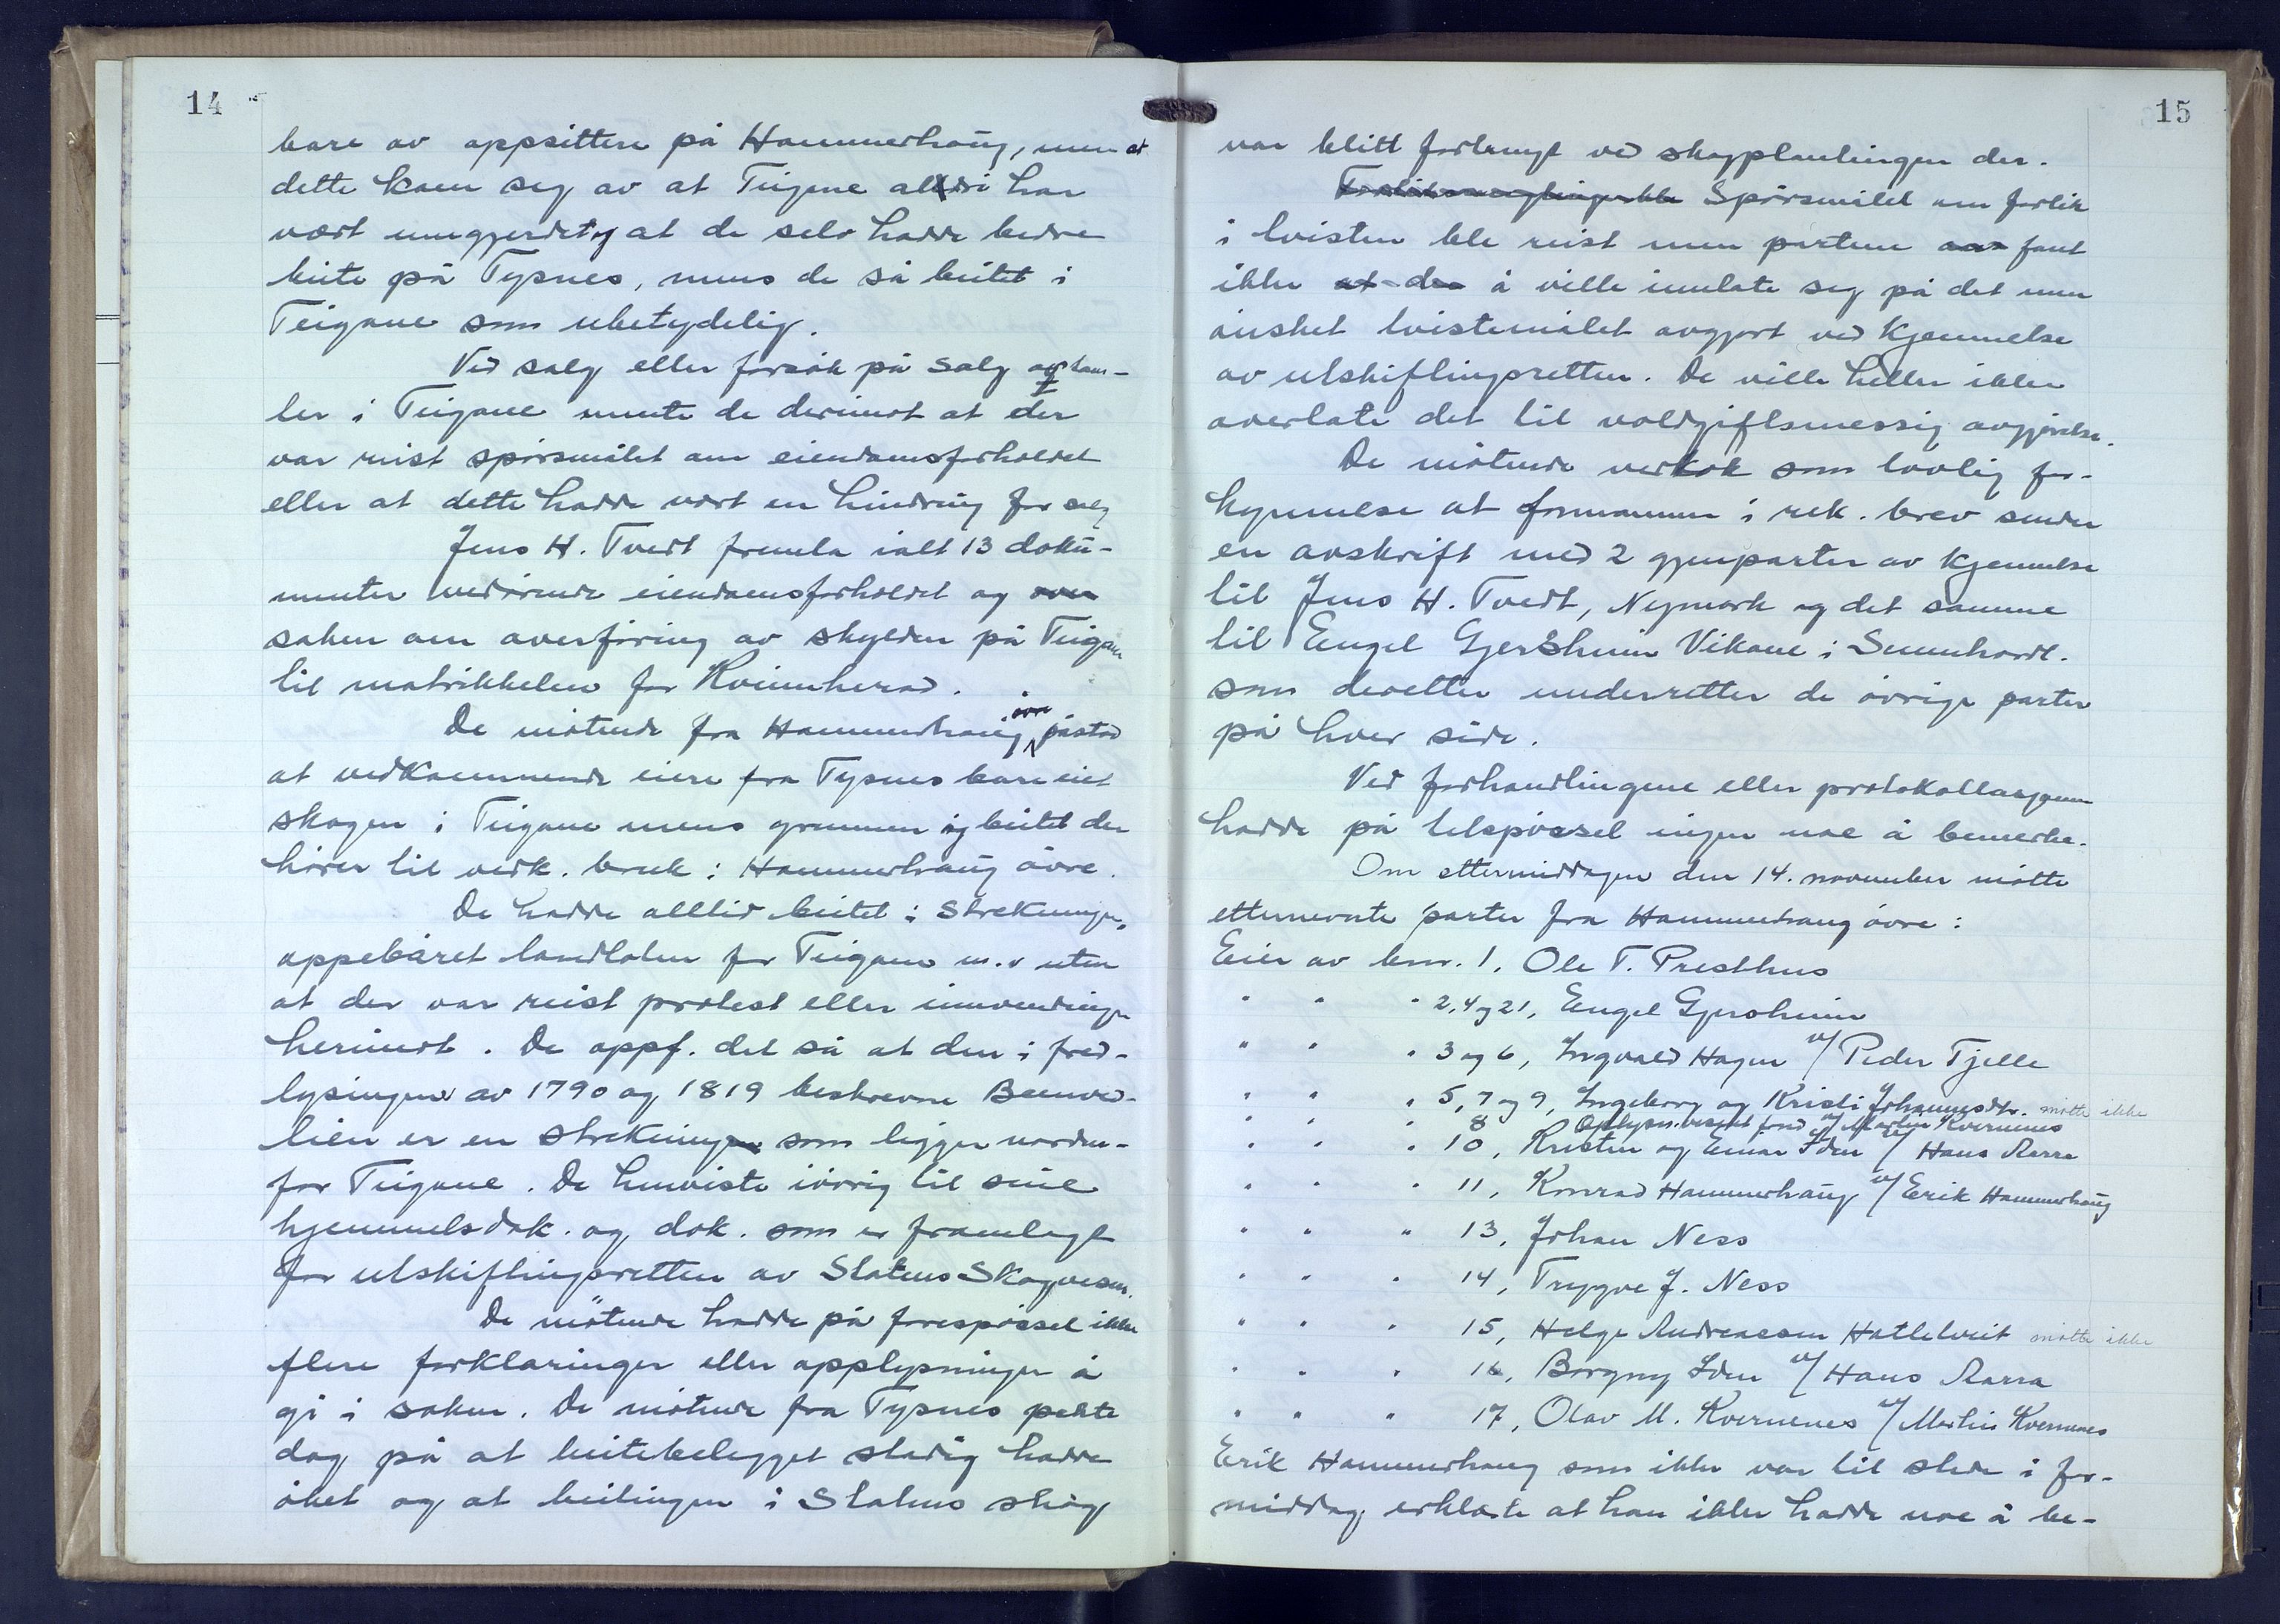 14
bare av oppsittere på Hammerhaug, men at
dette kom seg av at Teigane aldri har
vært inngjerdet og at de selv hadde bedre
beite på Tysnes, mens de så beitet i
Teigane som ubetydelig.
Ved salg eller forsøk på salg av tøm-
ler i Teigane mente de derimot at der
var reist spørsmålet om eiendomsforholdet
eller at dette hadde vært en hindring for salg
Jens H. Tvedt fremla ialt 13 doku-
menter vedrørende eiendomsforholdet og
saken om overføring av skylden på Teigane
til matrikkelen for Kvinnherad.
De møtende fra Hammerhaug øvre påstod
at vedkommende eiere fra Tysnes bare eiet
skogen i Teigane mens grunnen og beitet der
hører til vedk. bruk i Hammerhaug øvre.
De hadde alltid beitet i strekningen,
oppebåret landloten for Teigane m.v uten
at der var reist protest eller innvendinger
herimot. De oppf. det så at den i fred-
lysingene av 1790 og 1819 beskrevne
lien er en strekning som ligger norden-
for Teigane. De henviste iøvrig til sine
hjemmelsdok. og dok. som er framlagt
for utskiftingsretten av Statens Skogvesen.
De møtende hadde på forespørsel ikke
flere forklaringer eller opplysninger å
gi i saken. De møtende fra Tysnes pekte
dog på at beitebelegget stadig hadde
øket og at beitingen i Statens skog
15
var blitt fortrengt ved skogplantingen der.
Spørsmålet om forlik
i tvisten ble reist men partene fant
ikke å ville innlate seg på det men
ønsket tvistemålet avgjort ved kjennelse
av utskiftingsretten. De ville heller ikke
overlate det til voldgiftsmessig avgjørelse.
De møtende vedtok som lovlig for-
kynnelse at formannen i rek. brev sender
en avskrift med 2 gjenparter av kjennelse
til Jens H. Tvedt, Nymark og det samme
til Engel Gjersheim Vikane i Sunnhordl.
som deretter underretter de øvrige parter
på hver side.
Ved forhandlingene eller protokollasjonen
hadde på tilspørsel ingen noe å bemerke.
Om ettermiddagen den 14. november møtte
etternevnte parter fra Hammerhaug øvre:
Eier av bnr. 1, Ole T. Presthus
" " " 2, 4 og 21, Engel Gjersheim
" " " 3 og 6, Ingvald Hagen v/ Peder Tjelle
" " " 5, 7 og 9, Ingeborg og Kristi Johannesdtr. møtte ikke
" " " 8 Opplysn.vesenets fond v/ Martin Kvernenes
" " " 10, Kristen og Einar Iden v/ Hans Aarra
" " " 11, Konrad Hammerhaug v/ Erik Hammerhaug
" " " 13, Johan Ness
" " " 14, Trygve J. Ness
" " " 15, Helge Andreassen Hatletveit møtte ikke
" " " 16, Borgny Iden v/ Hans Aarra
" " " 17, Olav M. Kvernenes v/ Martin Kvernenes
Erik Hammerhaug som ikke var til stede i for-
middag, erklærte at han ikke hadde noe å be-